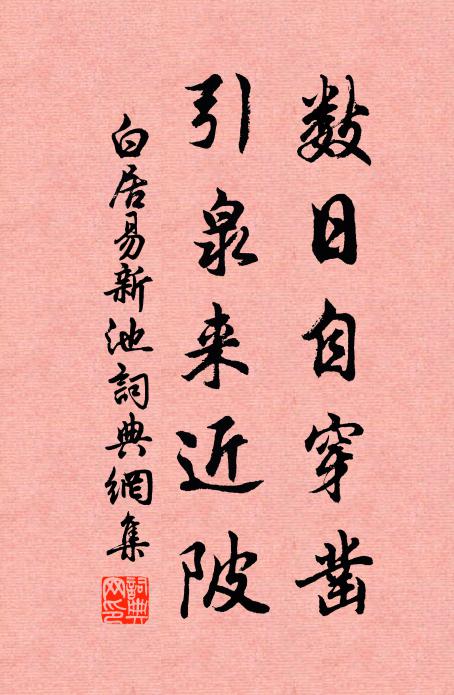 数日自穿凿
引泉来近陂
白居易新池詞典網集
詞典網印